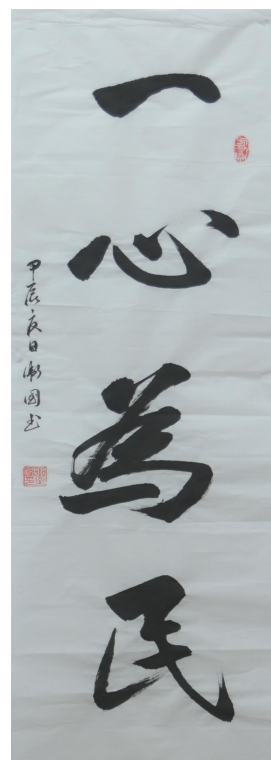 一心為民
甲辰夏日衛國书